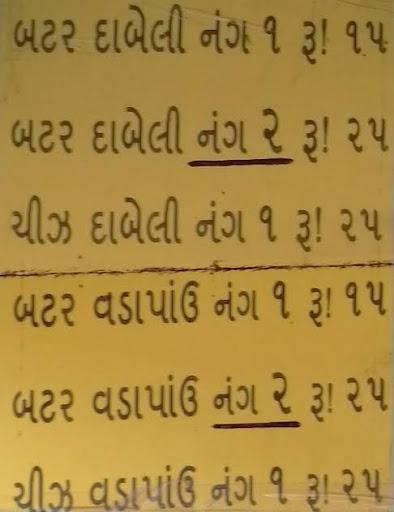 બટર દાબેલી નંગ ૧ રૂ! ૧૫
બટર દાબેલી નંગ ૨ રૂ! ૨૫
ચીઝ દાબેલી નંગ ૧ રૂ! ૨૫
બટર વડાપાંઉ નંગ ૧ રૂ! ૧૫
બટર વડાપાંઉ નંગ ૨ રૂ! ૨૫
ચીઝ વડાપાંઉ નંગ ૧ રૂ! ૨૫